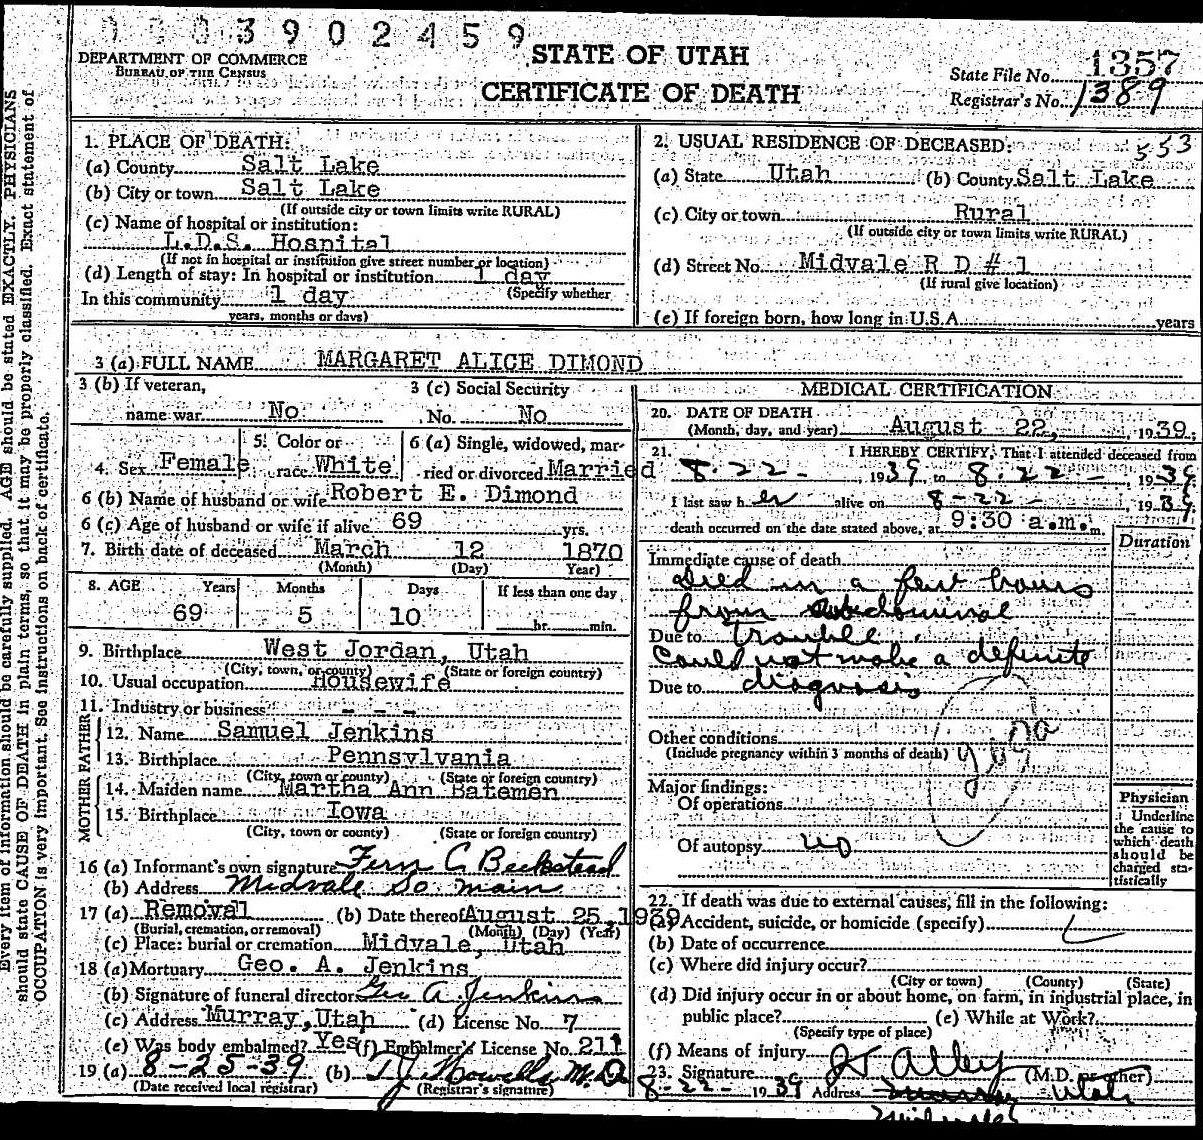 0003902459
DEPARTMENT OF COMMERCE
BUREAU OF THE CENSUS
STATE OF UTAH
CERTIFICATE OF DEATH
State File No. 1357
Registrar's No. 1389
Every item of information should be carefully supplied. AGE should be stated EXACTLY. PHYSICIANS
should state CAUSE OF DEATH in plain terms, so that it may be properly classified. Exact statement of
OCCUPATION is very important. See instructions on back of certificate.
1. PLACE OF DEATH:
(a) County Salt Lake
(b) City or town Salt Lake
(If outside city or town limits write RURAL)
(c) Name of hospital or institution:
L.D.S. Hospital
(If not in hospital or institution give street number or location)
(d) Length of stay: In hospital or institution 1 day
(Specify whether
In this community 1 day
years, months or days)
2. USUAL RESIDENCE OF DECEASED: 553
(a) State Utah (b) County Salt Lake
(c) City or town Rural
(If outside city or town limits write RURAL)
(d) Street No. Midvale R D # 1
(If rural give location)
(e) If foreign born, how long in U.S.A. years
3 (a) FULL NAME MARGARET ALICE DIMOND
3 (b) If veteran,
name war No
3 (c) Social Security
No. No
4. Sex Female
5. Color or
race White
6 (a) Single, widowed, mar-
ried or divorced Married
6 (b) Name of husband or wife Robert E. Dimond
6 (c) Age of husband or wife if alive 69 yrs.
7. Birth date of deceased March 12 1870
(Month) (Day) Year)
8. AGE Years Months Days If less than one day
69 5 10 hr. min.
9. Birthplace West Jordan, Utah
(City, town, or county) (State or foreign country)
10. Usual occupation Housewife
11. Industry or business - - -
FATHER
12. Name Samuel Jenkins
13. Birthplace Pennsylvania
(City, town or county) (State or foreign country)
MOTHER
14. Maiden name Martha Ann Batemen
15. Birthplace Iowa
(City, town or county) (State or foreign country)
16 (a) Informant's own signature Fern C Beckstead
(b) Address Midvale So. main
17 (a) Removal (b) Date thereof August 25, 1939
(Burial, cremation, or removal) (Month) (Day) (Year)
(c) Place: burial or cremation Midvale, Utah
18 (a) Mortuary Geo. A. Jenkins
(b) Signature of funeral director Geo A. Jenkins
(c) Address Murray, Utah (d) License No. 7
(e) Was body embalmed? Yes (f) Embalmer's License No. 211
19 (a) 8-25-39 (b) T.J. Howells M.D.
(Date received local registrar) (Registrar's signature)
MEDICAL CERTIFICATION
20. DATE OF DEATH
(Month, day, and year) August 22, 1939.
21. I HEREBY CERTIFY, That I attended deceased from
8-22- 1939, to 8-22-, 1939.
I last saw her alive on 8-22-, 1939,
death occurred on the date stated above, at 9:30 a.m. m.
Duration
Immediate cause of death
Died in a few hours
from abdominal
Due to trouble.
Could not make a definite
Due to diagnosis
Other conditions
(Include pregnancy within 3 months of death)
Major findings:
Of operations
Of autopsy no
Physician
Underline
the cause to
which death
should be
charged sta-
tistically
22. If death was due to external causes, fill in the following:
(a) Accident, suicide, or homicide (specify)
(b) Date of occurrence
(c) Where did injury occur?
(City or town) (County) (State)
(d) Did injury occur in or about home, on farm, in industrial place, in
public place? (e) While at Work?
(Specify type of place)
(f) Means of injury
23. Signature J Alley (M.D. or other)
8-22- 1939 Address Murray Utah
Midvale